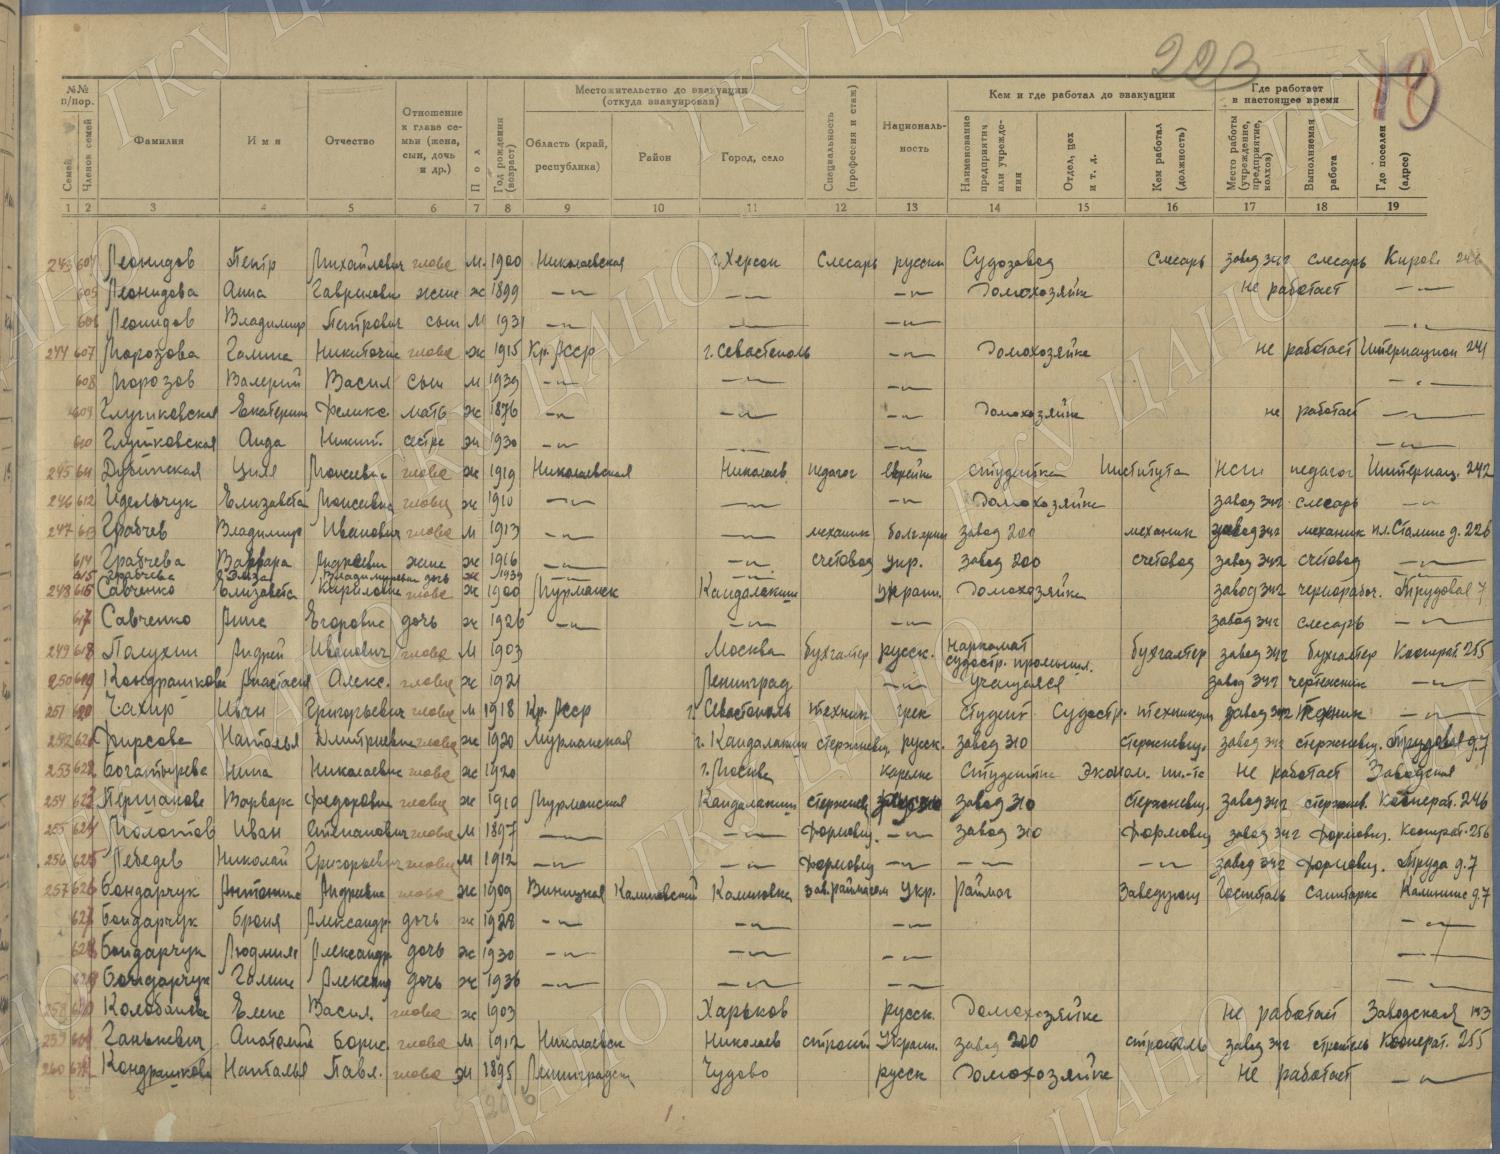 223
18
№№ п/пор.
Семей
Членов семей
Фамилия
Имя
Отчество
Отношение к главе семьи (жена, сын, дочь и др.)
Пол
Год рождения (возраст)
Местожительство до эвакуации (откуда эвакуирован)
Область (край, республика)
Район
Город, село
Специальность (профессия и стаж)
Националь-ность
Кем и где работал до эвакуации
Наименование предприятия или учреждения
Отдел, цех и т. д.
Кем работал (должность)
Где работает в настоящее время
Место работы (учреждение, предприятие, колхоз)
Выполняемая работа
Где поселен (адрес)
1 2 3 4 5 6 7 8 9 10 11 12 13 14 15 16 17 18 19
243 604 Леонидов Петр Михайлович глава м. 1900 Николаевская г. Херсон Слесарь русский Судозавод Слесарь завод 342 слесарь Киров. 246
605 Леонидова Анна Гавриловн жена ж 1899 —„— —„— —„— Домохозяйка не работает —„—
606 Леонидов Владимир Петрович сын м 1931 —„— —„— —„— —„—
244 607 Морозова Галина Никитична глава ж 1915 Кр. АССР г. Севастополь —„— Домохозяйка не работает Интернацион 241
608 Морозов Валерий Васил сын м 1939 —„— —„— —„— —„—
609 Глушковская Екатерин Феликс. мать ж 1876 —„— —„— —„— Домохозяйка не работает —„—
610 Глушковская Аида Никит. сестра ж 1930 —„— —„— —„— —„—
245 611 Дубинская Циля Моисеевна глава ж 1919 Николаевская Николаев педагог еврейка студентка Института НСШ педагог Интернац. 242
246 612 Идельчук Елизавета Моисеевна глава ж 1910 —„— —„— —„— Домохозяйка завод 342 слесарь —„—
247 613 Грабчев Владимир Иванович глава м 1913 —„— —„— механик завод 200 механик завод 342 механик пл. Сталина д. 226
614 Грабчева Варвара Андреевн жена ж 1916 —„— —„— счетовод укр. завод 200 счетовод завод 342 счетовод —„—
615 Грабчева Владимировн дочь ж 1939 —„— —„—
248 616 Савченко Елизавета Кириловна глава ж 1900 Мурманск Кандалакша украин. Домохозяйка завод 342 чернорабоч. Трудовая 7
617 Савченко Анна Егоровна дочь ж 1926 —„— —„— —„— завод 342 слесарь —„—
249 618 Палухин Андрей Иванович глава м 1903 Москва бухгалтер русск. Наркомат судостр. промышл. бухгалтер завод 342 бухгалтер Кооперат. 255
250 619 Кондрашкова Анастасия Алекс. глава ж 1921 Ленинград —„— учащаяся завод 342 чертежник —„—
251 620 Чахир Иван Григорьевич глава м 1918 Кр. АССР г. Севастополь техник грек студент Судостр. техникум завод 342 техник —„—
252 621 Фирсова Наталья Дмитриевна глава ж 1920 Мурманская г. Кандалакши стерженщ. русск. завод 310 стерженщ. завод 342 стерженщ. Трудовая д. 7
253 622 Богатырева Нина Николаевна глава ж 1920 г. Москва студентка Эконом. ин-та не работает Заводская
254 623 Першакова Варвара Федоровна глава ж 1910 Мурманская Кандалакши стерженщ завод 310 стерженщ. завод 342 стерженщ. Кооперат. 246
255 624 Молотов Иван Степанович глава м 1897 —„— —„— формовщ —„— завод 310 формовщ завод 342 формовщ. Кооперат. 256
256 625 Лебедев Николай Григорьевич глава м 1912 —„— —„— формовщ —„— —„— —„— завод 342 формовщ. Труда д. 7
257 626 Бондарчук Антонина Андреевна глава ж 1909 Виницкая Калиновский Калиновка зав. раймагом укр. раймаг Заведующ Госпиталь санитарка Калинина д. 7
627 Бондарчук Броня Александр дочь ж 1928 —„— —„— —„— —„—
628 Бондарчук Людмила Александр дочь ж 1930 —„— —„— —„— —„—
629 Бондарчук Галина Александ дочь ж 1936 —„— —„— —„— —„—
258 630 Колобанова Елена Васил. глава ж 1903 Харьков русск. Домохозяйка не работает Заводская 193
259 631 Ганькевич Анатолий Борис. глава м 1912 Николаевск Николаев строит Украин. завод 200 строитель завод 342 строитель Кооперат. 255
260 632 Кондрашкова Наталья Павл. глава ж 1895 Ленинградск Чудово русск Домохозяйка не работает —„—
1.
ГКУ ЦАНО